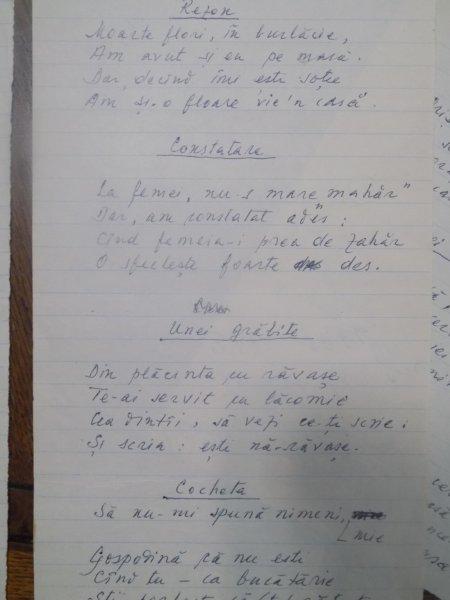 Rezon
Moarte flori, în burlărie,
Am avut și eu pe masă.
Dar, decînd îmi ești soție
Am și-o floare "vie"n casă".
Constatare
La femei, nu-s mare "mahăr"
Dar, am constatat ades:
Cînd femeia-i prea de zahăr
O sfeclește foarte des.
Unei grăbite
Din plăcinta cu răvașe
Te-ai servit cu lăcomie
Cea dintîi, să vezi ce-ți scrie:
Și scria: ești nă-răvașe.
Cocheta
Să nu-mi spună nimeni, mie
Gospodină că nu ești
Cînd tu – ca bucătărie